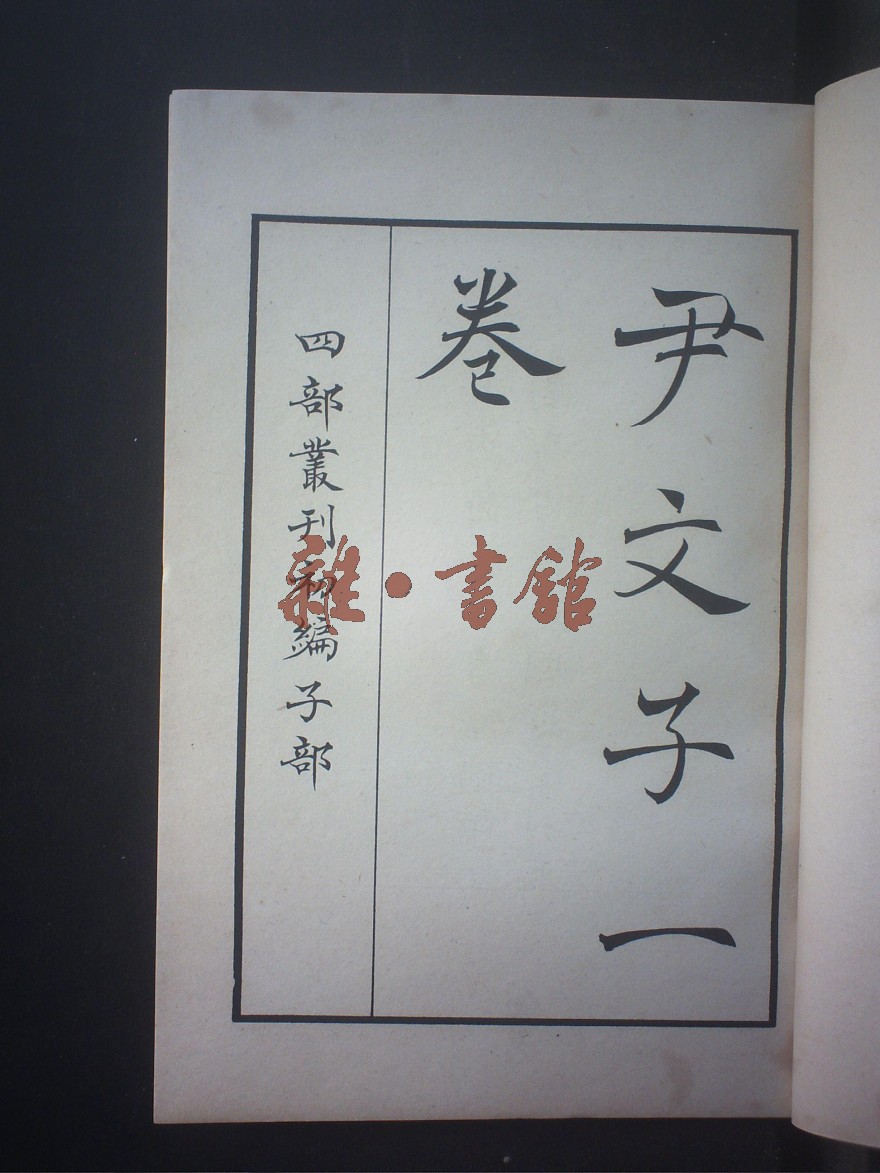 尹文子一
卷
四部叢刊初編子部
雜·書館